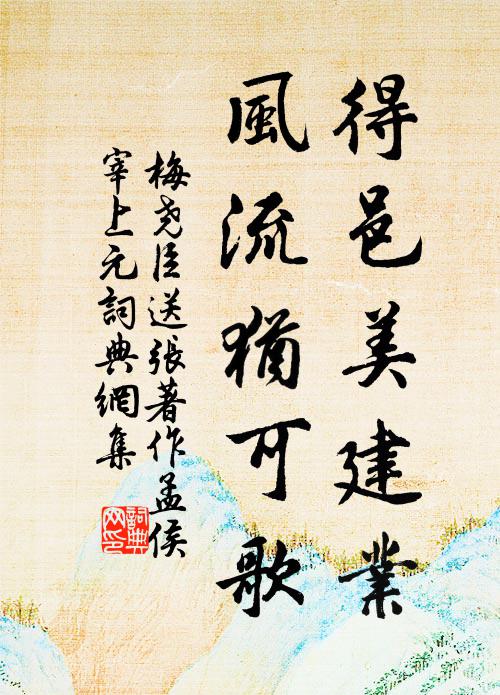 得邑美建業
風流猶可歌
梅尧臣送張著作孟侯
宰上元詞典網集